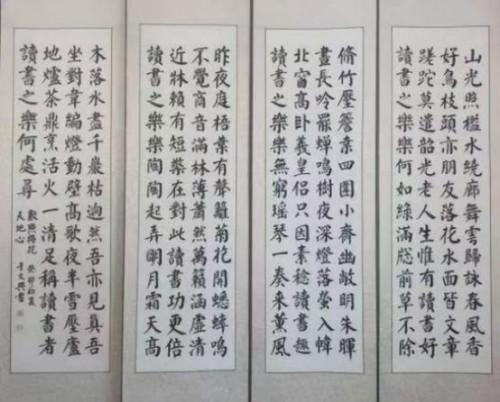 山光照檻水繞廊舞雩歸詠春風香
好鳥枝頭亦朋友落花水面皆文章
蹉跎莫遣韶光老人生惟有讀書好
讀書之樂樂何如綠滿窗前草不除
脩竹壓簷桑四圍小齋幽敞明朱暉
晝長吟罷蟬鳴樹夜深燈落螢入幃
北窗高臥羲皇侶只因素稔讀書趣
讀書之樂樂無窮瑤琴一奏來薰風
昨夜庭梧葉有聲籬菊花開蟋蟀鳴
不覺商音滿林薄蕭然萬籟涵虛清
近牀賴有短檠在對此讀書功更倍
讀書之樂樂陶陶起弄明月霜天高
木落水盡千巖枯迥然吾亦見真吾
坐對韋編燈動壁高歌夜半雪壓廬
地爐茶鼎烹活火一清足稱讀書者
讀書之樂何處尋
數點梅花
天地心
癸卯初夏
書